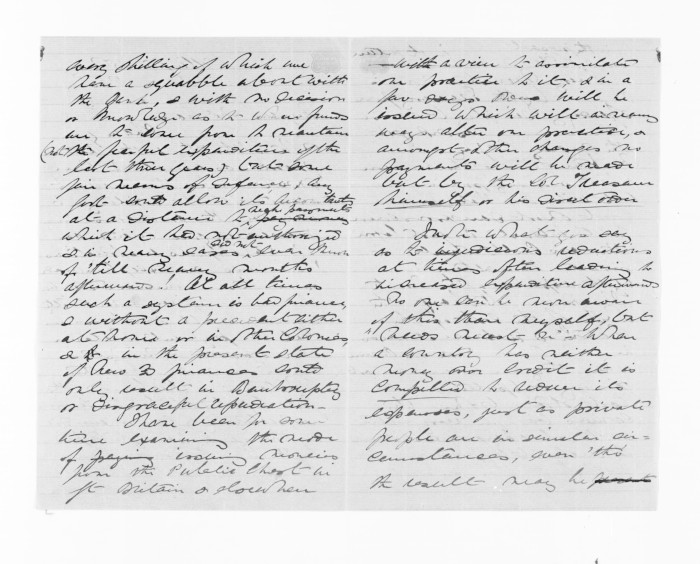 every shilling of which we
have a squabble about with
the &, with no decision
or knowledge as to when funds
are to come from to maintain
(not the fearful expenditure of the
last three years) but some
fair means of defence; any
Govt could allow its
at a distance to make payments
which it had not authorized
& in many cases did not even know
of 'till many months
afterwards! At all times
such a system is bad finance,
& without a precedent either
at home or in other Colonies,
& in the present state
of New Zd finances could
only result in Bankruptcy
or disgraceful repudiation—
I have been for some
time examining the mode
of paying issuing monies
from the Public Chest in
Gt Britain & elsewhere
with a view to assimilate
our practice to it, & in a
few days will be
issued which will in many
ways alter our practice, &
amongst other changes no
payments will be made
but by the Col Treasurer
himself or his direct order
I note what you say
as to injudicious reductions
at times often leading to
increased expenditure afterwards
No one can be more aware
of this than myself, but
"needs must" & when
a country has neither
money nor credit it is
compelled to reduce its
expenses, just as private
people are in similar cir=
cumstances, even 'tho
the result may be